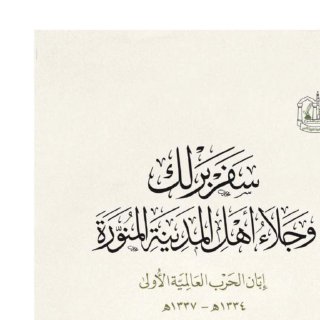 سفر برلك
وجلاء أهل المدينة المنورة
إبّان الحرب العالميّة الأولى
١٣٣٤هـ - ١٣٣٧هـ